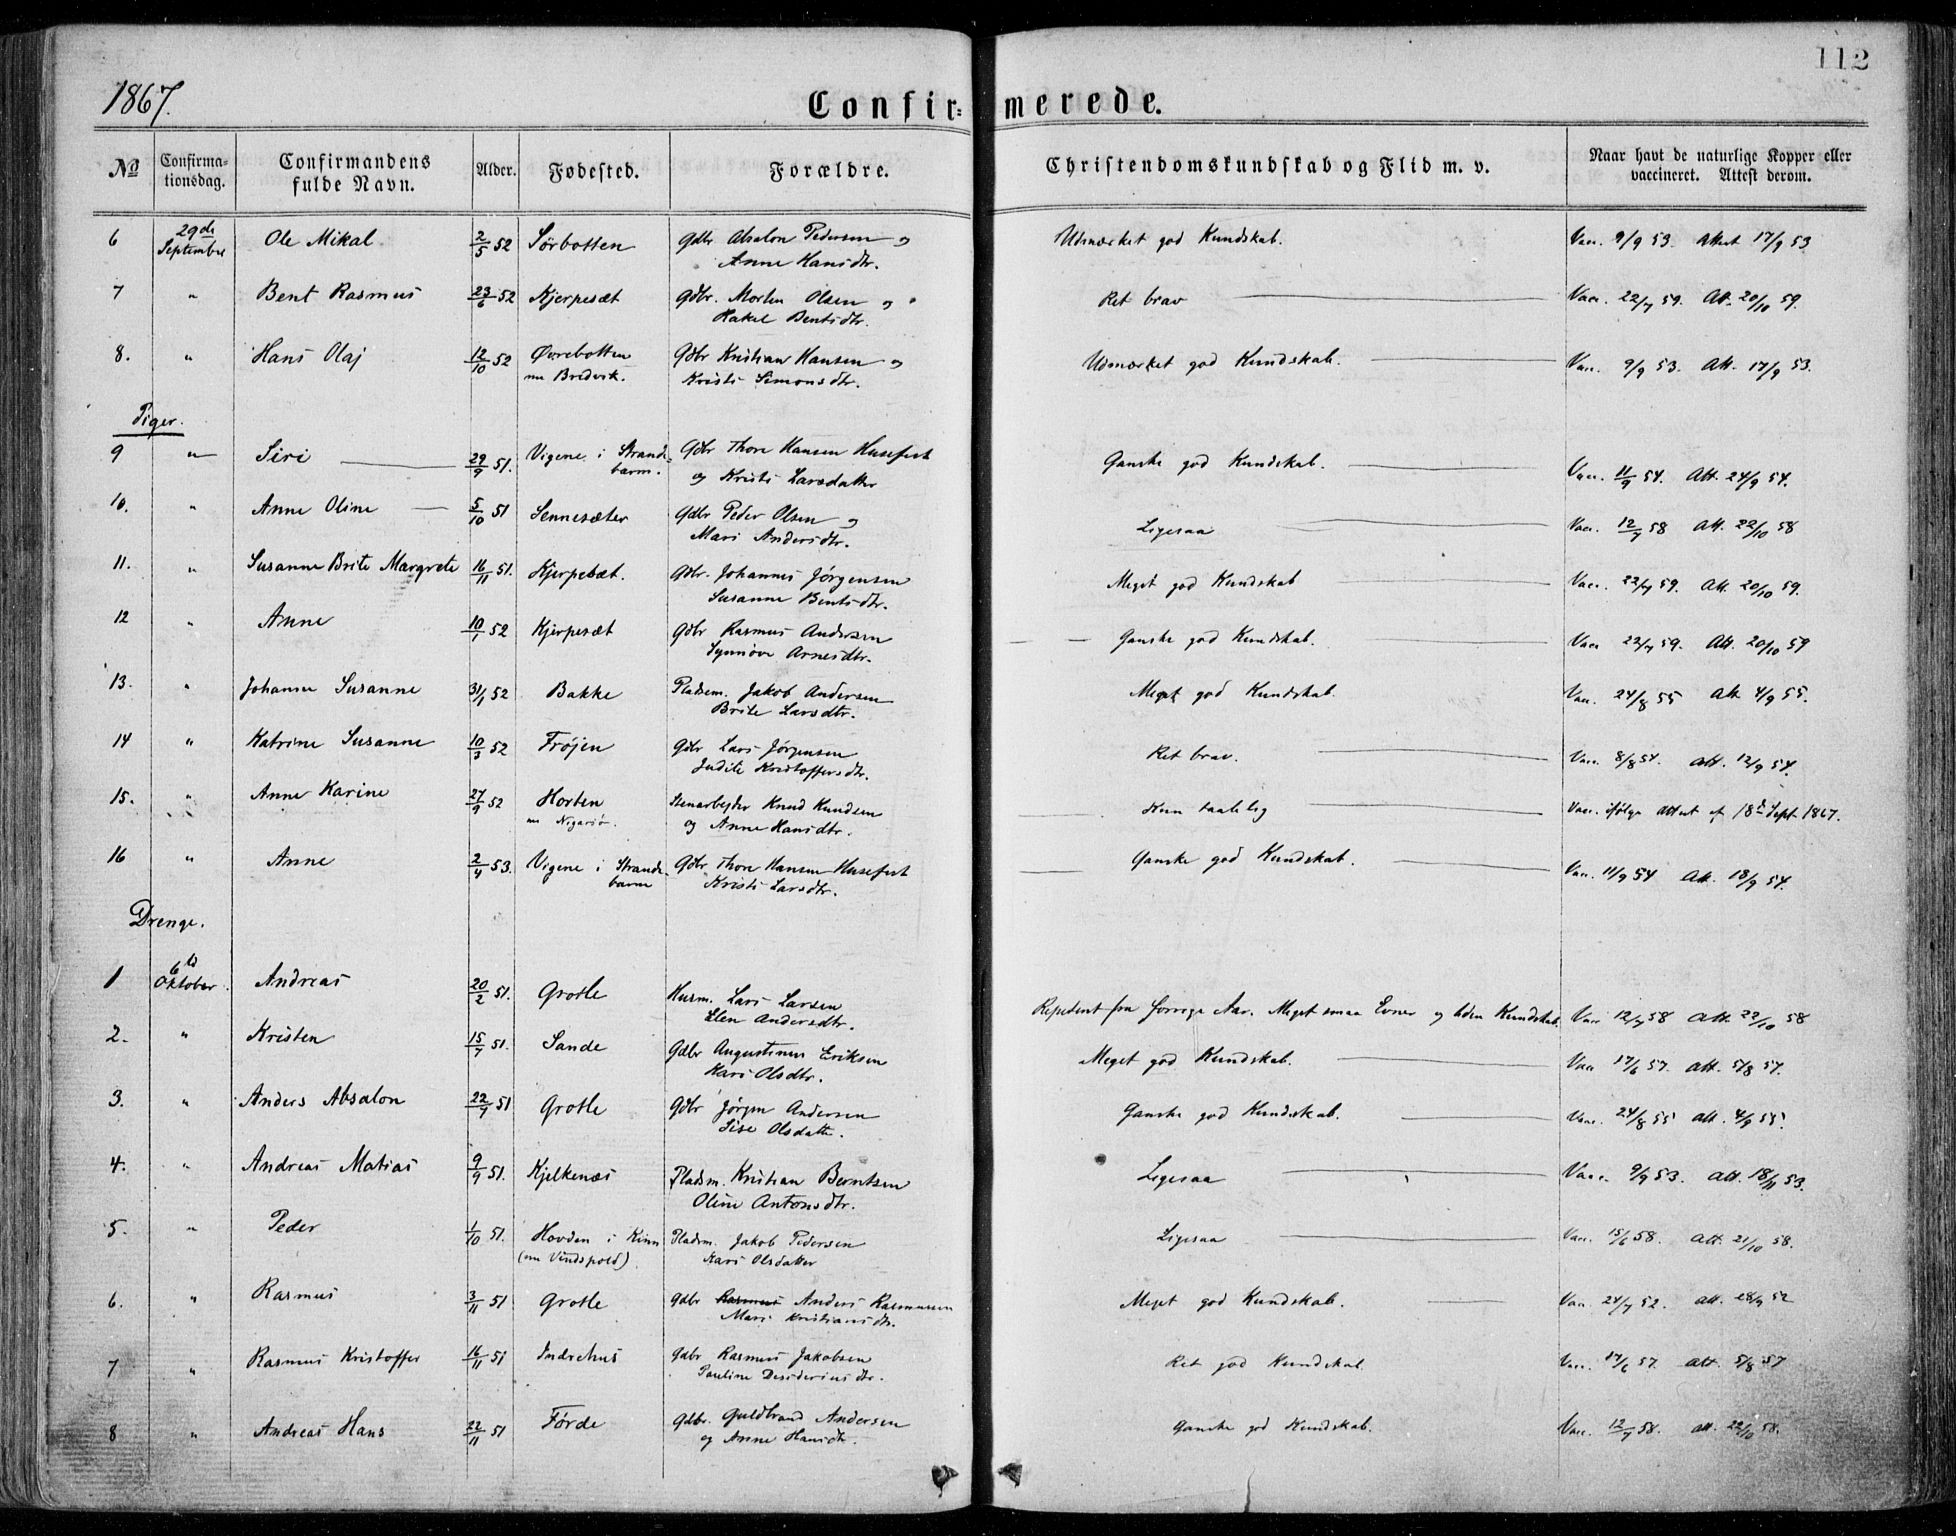 112
1867.
Confir= merede.
No Confirma-tionsdag. Confirmandens fulde Navn. Alder. Fødested. Forældre. Christendomskundskab og Flid m. v. Naar havt de naturlige Kopper eller vaccineret. Attest derom.
6 29de September Ole Mikal 2/5 52 Sørbotten Gdbr Absalon Pedersen og Udmærket god Kundskab. Vacc. 9/9 53. Attest 17/9 53
Anne Hansdtr.
7 " Bent Rasmus 23/6 52 Kjerpesæt Gdbr. Morten Olsen og Ret brav Vacc. 22/7 59. Att. 20/10 59.
Rakel Bentsdtr.
8. " Hans Olaj 12/10 52 Øvrebotten Gdbr Kristian Hansen og Udmærket god Kundskab. Vacc. 9/9 53. Att. 17/9 53.
nu Bredvik. Kristi Simonsdtr.
Piger.
9 " Siri 29/9 51. Vigene i Strande- Gdbr Thore Hansen Husefest Ganske god Kundskab. Vacc. 11/9 54. Att. 24/9 54.
barm. og Kristi Larsdatter
10. " Anne Oline 5/10 51 Sennesæter Gdbr Peder Olsen og Ligesaa Vacc. 12/7 58 Att. 22/10 58
Mari Andersdtr.
11. " Susanne Brite Margrete 16/11 51. Kjerpesæt. Gdbr. Johannes Jørgensen Meget god Kundskab Vacc. 22/7 59. Att. 20/10 59.
Susanne Bentsdtr.
12 " Anne 10/1 52 Kjerpesæt Gdbr Rasmus Andersen Ganske god Kundskab. Vacc 22/7 59. Att. 20/10 59
Synnøve Arnesdtr.
13. " Johanne Susanne 31/1 52 Bakke Pladsm. Jakob Andersen Meget god Kundskab. Vacc. 24/8 55 Att 4/9 55.
Brite Larsdtr.
14 " Katrine Susanne 10/3 52 Frøjen Gdbr Lars Jørgensen Ret brav. Vacc. 8/8 54. Att. 12/9 54.
Judite Kristoffersdtr.
15. " Anne Karine 27/9 52 Horten Stenarbejder Knud Knudsen Kun taalelig Vacc. ifølge Attest af 18de Sept. 1867.
nu og Anne Hansdtr.
16 " Anne 2/4 53. Vigene i Strande- Gdbr. Thore Hansen Husefest Ganske god Kundskab. Vacc. 11/9 54 Att. 18/9 54.
barm Kristi Larsdtr.
Drenge.
1 6te Oktober. Andreas 20/2 51. Grotle Husm. Lars Larsen Repetent fra forrige Aar. Meget smaa Evner og liden Kundskab. Vacc 12/7 58 Att. 22/10 58
Elen Andersdtr.
2. " Kristen 15/7 51. Sande Gdbr Augustinus Eriksen Meget god Kundskab. Vacc 17/6 57. Att. 5/8 57.
Kari Olsdtr.
3. " Anders Absalon 22/7 51 Grotle Gdbr Jørgen Andersen Ganske god Kundskab. Vacc. 24/8 55 Att. 4/9 55.
Lise Olsdatter.
4. " Andreas Matias 9/9 51. Kjelkenæs Pladsm. Kristian Berntsen Ligesaa Vacc. 9/9 53. Att. 18/11 53.
Oline Antonsdtr.
5. " Peder 1/10 51. Hovden i Kinn Pladsm. Jakob Pedersen Ligesaa Vacc. 15/6 58. Att. 21/10 58.
(nu Vindspold) Kari Olsdatter
6. " Rasmus 3/11 51 Grotle Gdbr Rasmus Anders Rasmussen Meget god Kundskab. Vacc. 24/7 52. Att. 28/9 52
Mari Kristiansdtr.
7 " Rasmus Kristoffer 16/11 51 Indrehus Gdbr Rasmus Jakobsen Ret god Kundskab Vacc. 17/6 57. Att. 5/8 57
Pauline Desideriusdtr.
8 " Andreas Hans 22/11 51 Førde Gdbr. Guldbrand Andersen Ganske god Kundskab. Vacc. 12/7 58. Att. 22/10 58.
og Anne Hansdtr.